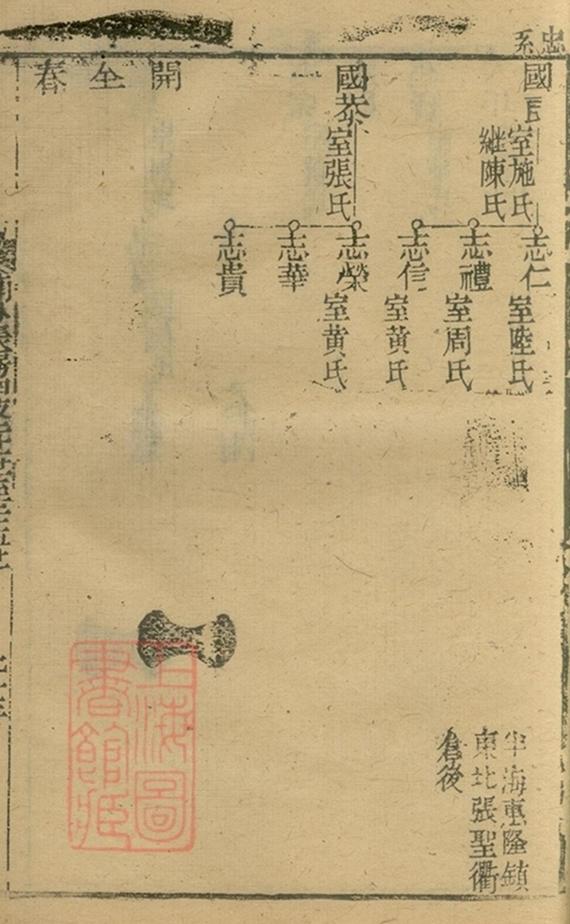 忠系
國
室施氏
繼陳氏
志仁
室陸氏
志禮
室周氏
志信
室黄氏
國恭
室張氏
志榮
室黄氏
志華
志貴
海惠隆鎮
東北張聖衢
倉後
開
全
春
上海圖書館藏